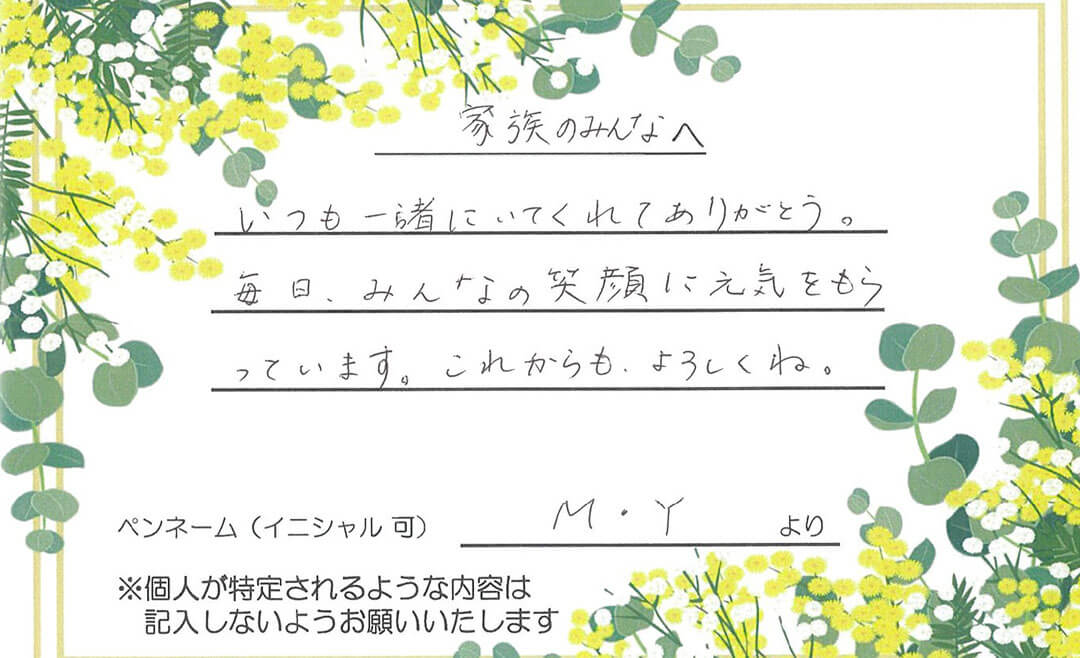 家族のみんなへ
いつも一緒にいてくれてありがとう。
毎日、みんなの笑顔に元気をもら
っています。これからも、よろしくね。
ペンネーム（イニシャル 可） M・Y より
※個人が特定されるような内容は
記入しないようお願いいたします